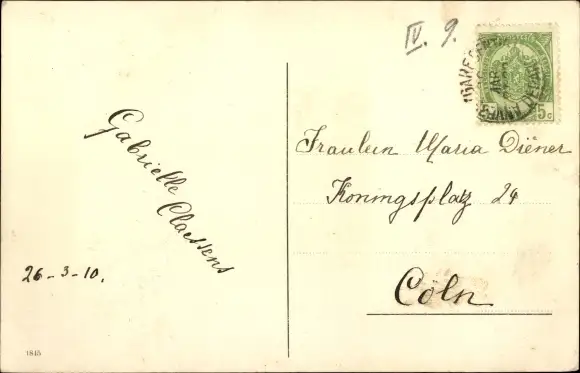 IV. 9.
5c
Gabrielle Claessens
26-3-10.
Fraulein Maria Diëner
Koningsplatz 24
Cöln
1815